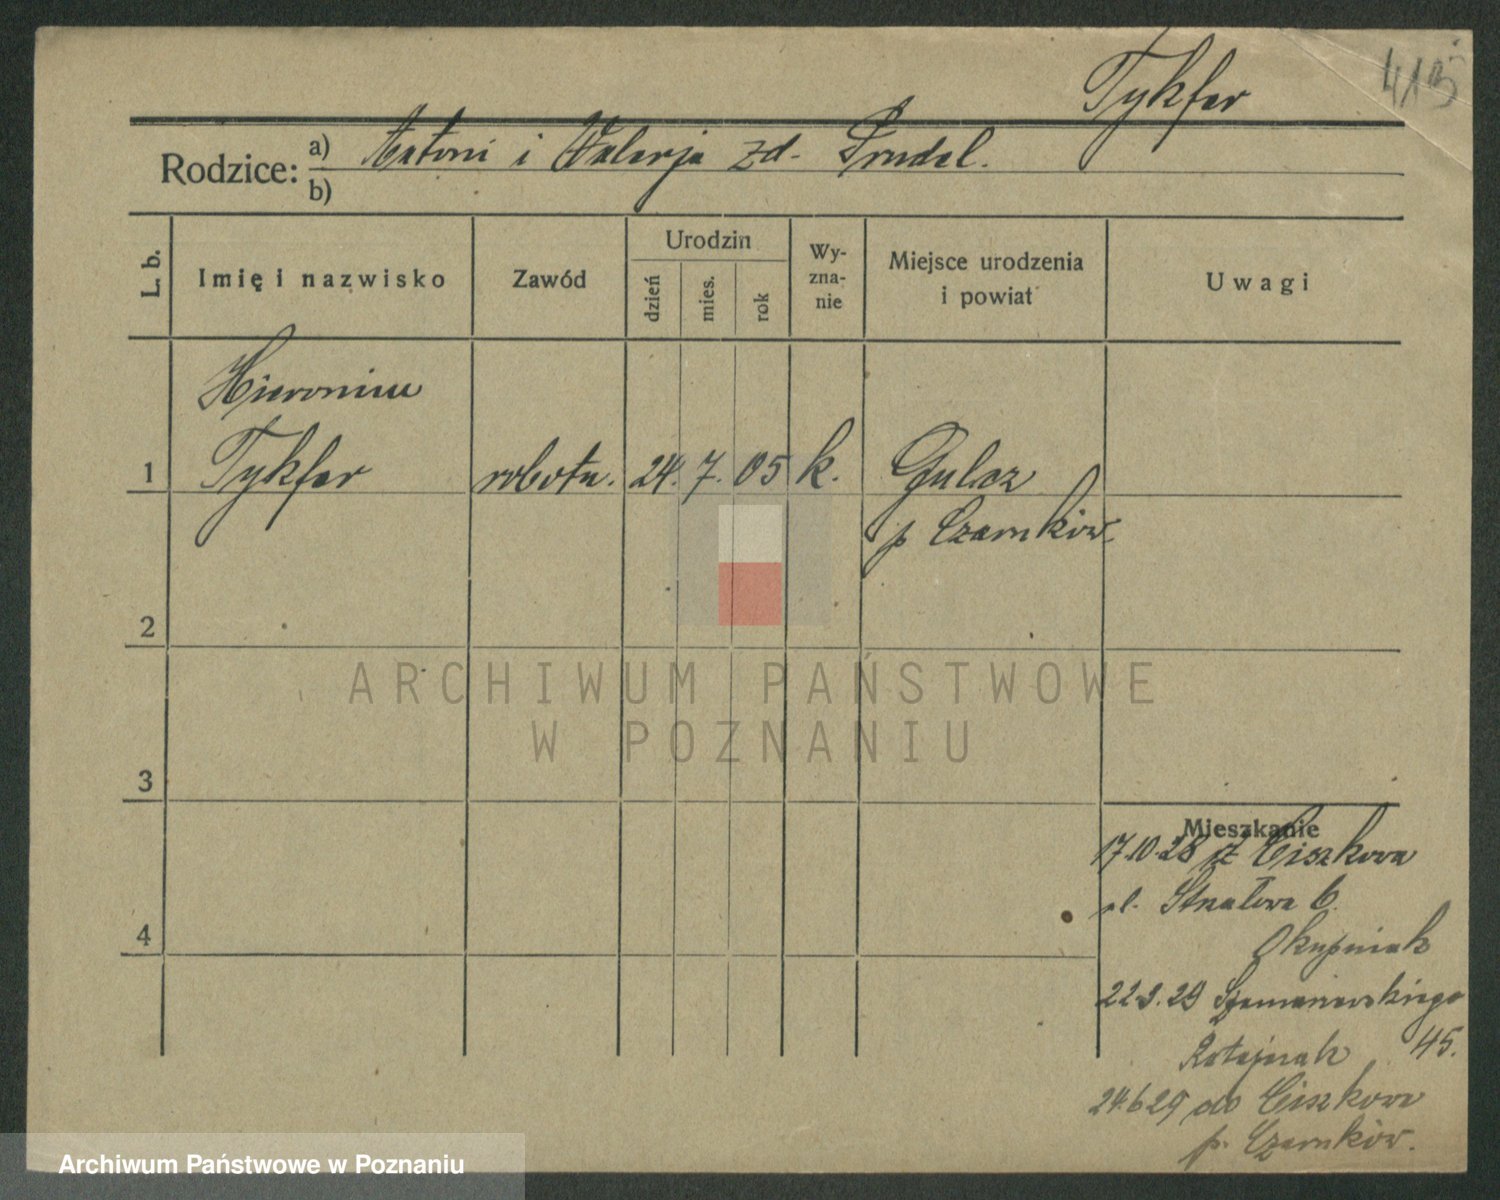 Tykfer
413
Rodzice: a) Antoni i Walerja zd.
b)
L. b.
Imię i nazwisko
Zawód
Urodzin
dzień
mies.
rok
Wy-
zna-
nie
Miejsce urodzenia
i powiat
Uwagi
Hieronim
1 Tykfer robotn. 24. 7. 05 k. Gulcz
p Czarnków.
2
ARCHIWUM PAŃSTWOWE
W POZNANIU
3
Mieszkanie
17.10.28 z Ciszkowa
ul. 6.
Okupniak
22.3.29
Ratajczak 45.
24.6.29 do Ciszkowa
p. Czarnków.
4
Archiwum Państwowe w Poznaniu